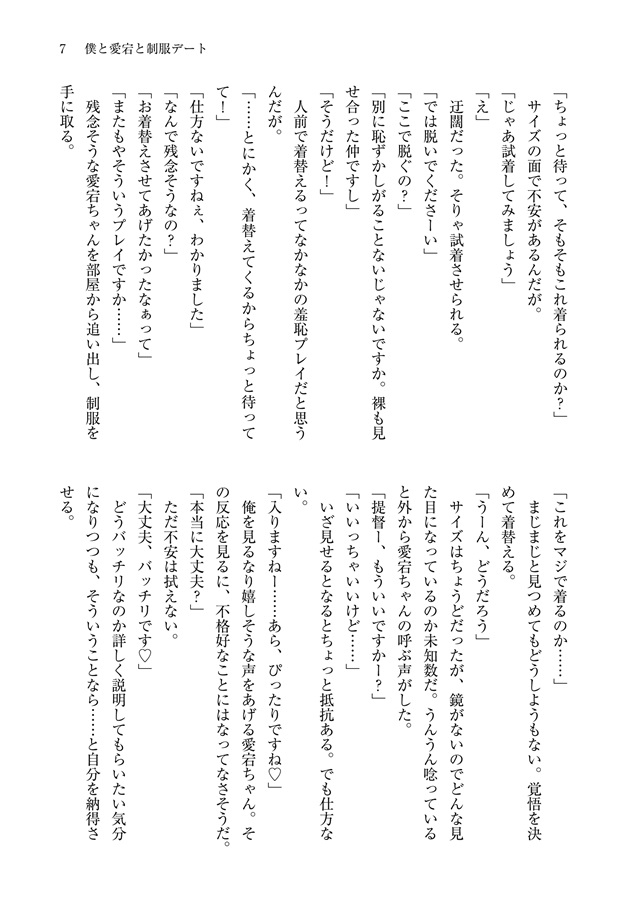 7　僕と愛宕と制服デート
「ちょっと待って、そもそもこれ着られるのか？」
サイズの面で不安があるんだが。
「じゃあ試着してみましょう」
「え」
迂闊だった。そりゃ試着させられる。
「では脱いでくださーい」
「ここで脱ぐの？」
「別に恥ずかしがることないじゃないですか。裸も見
せ合った仲ですし」
「そうだけど！」
人前で着替えるってなかなかの羞恥プレイだと思う
んだが。
「……とにかく、着替えてくるからちょっと待って
て！」
「仕方ないですねぇ、わかりました」
「なんで残念そうなの？」
「お着替えさせてあげたかったなぁって」
「またもやそういうプレイですか……」
残念そうな愛宕ちゃんを部屋から追い出し、制服を
手に取る。
「これをマジで着るのか……」
まじまじと見つめてもどうしようもない。覚悟を決
めて着替える。
「うーん、どうだろう」
サイズはちょうどだったが、鏡がないのでどんな見
た目になっているのか未知数だ。うんうん唸っている
と外から愛宕ちゃんの呼ぶ声がした。
「提督ー、もういいですかー？」
「いいっちゃいいけど……」
いざ見せるとなるとちょっと抵抗ある。でも仕方な
い。
「入りますねー……あら、ぴったりですね♡」
俺を見るなり嬉しそうな声をあげる愛宕ちゃん。そ
の反応を見るに、不格好なことにはなってなさそうだ。
「本当に大丈夫？」
ただ不安は拭えない。
「大丈夫、バッチリです♡」
どうバッチリなのか詳しく説明してもらいたい気分
になりつつも、そういうことなら……と自分を納得さ
せる。